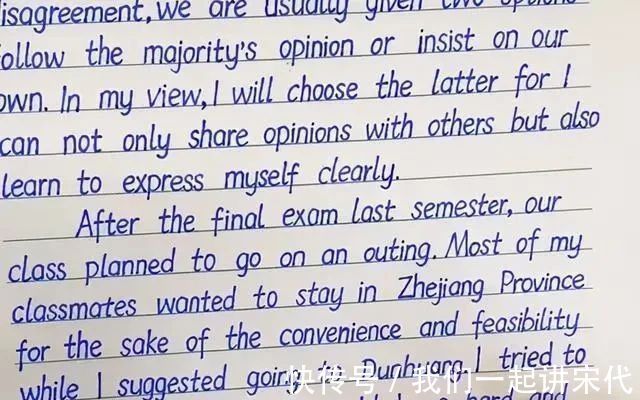 isagreement, we are usually given two options
follow the majority's opinion or insist on our
own. In my view, I will choose the latter for I
can not only share opinions with others but also
learn to express myself clearly.
After the final exam last semester, our
class planned to go on an outing. Most of my
classmates wanted to stay in Zhejiang Province
for the sake of the convenience and feasibility
while I suggested going to Dunhuang. I tried to
快传号 / 我们一起讲宋代
hard and